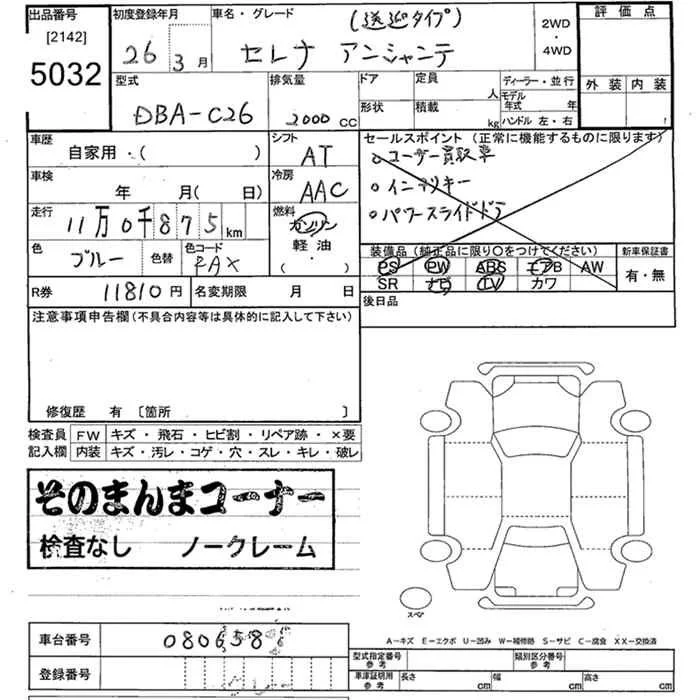 出品番号 初度登録年月 車名・グレード (送迎タイプ) 2WD ・ 4WD 評価点
[2142] 5032 26年 3月 セレナ アンシャンテ
型式 排気量 ドア 定員 人 ディーラー・並行 外装 内装
DBA-C26 2000 CC 形状 積載 kg モデル年式 年 ハンドル 左・右
車歴 自家用・( ) シフト AT セールスポイント(正常に機能するものに限ります)
ユーザー買取車
車検 年 月(日) 冷房 AAC
インテリキー
走行 11万0千875 km 燃料 ガソリン 軽油 ( ・ )
パワースライドドア
色 ブルー 色替 色コード RAX
装備品(純正品に限り○をつけてください) 新車保証書
PS PW ABS エアB AW 有・無
SR ナビ TV カワ
R券 11810円 名変期限 月 日 後日品
注意事項申告欄(不具合内容等は具体的に記入して下さい)
修復歴 有 [箇所 ]
検査員 FW キズ・飛石・ヒビ割・リペア跡・×要
記入欄 内装 キズ・汚レ・コゲ・穴・スレ・キレ・破レ
そのまんまコーナー
検査なし ノークレーム
スペア
A-キズ E-エクボ U-凹み W-補修跡 S-サビ C-腐食 XX-交換済
車台番号
型式指定番号 参考 類別区分番号 参考
登録番号
車庫証明用 参考 長さ cm 幅 cm 高さ cm